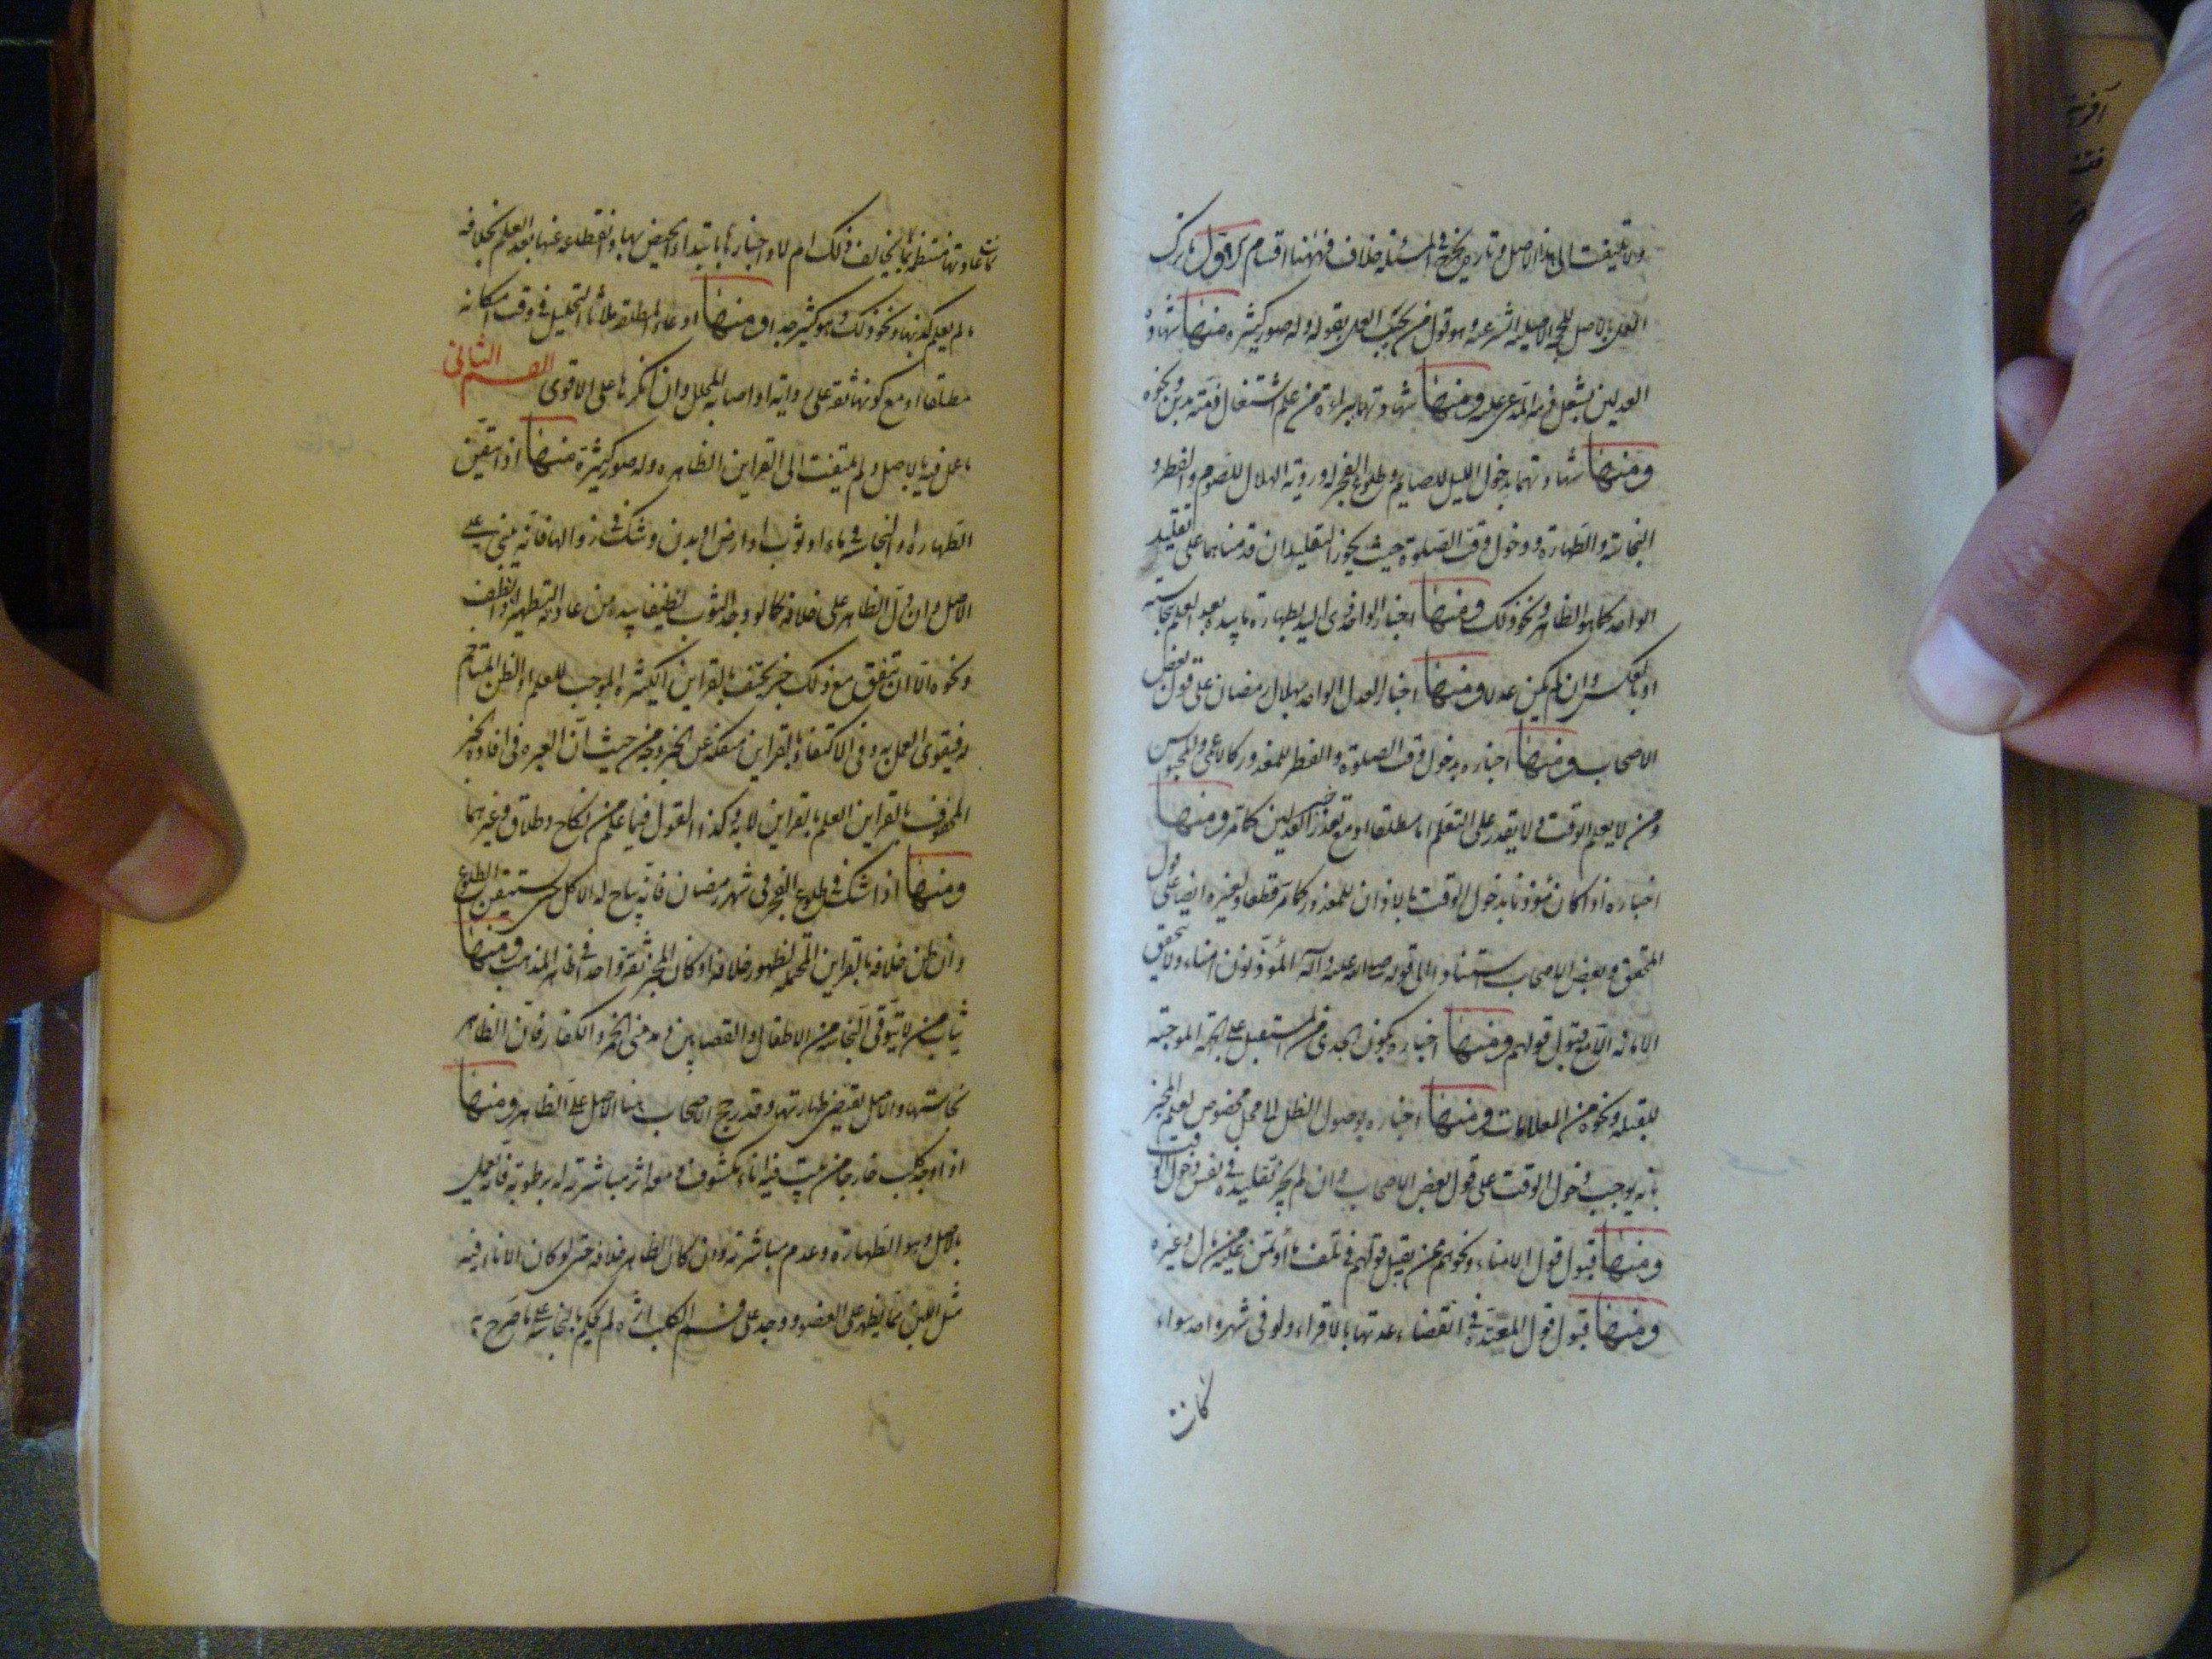 ولا يلتفت الى هذا الاصل وتارة يخرج في المسئلة خلاف فههنا اقسام الاول ما ترك
العمل بالاصل للحجة الشرعية وهو قول من يجب العمل بقوله وله صور كثيرة منها شهادة
العدلين بشغل ذمة المدعى عليه ومنها شهادتهما ببراءة من علم اشتغال ذمته بدين ونحوه
ومنها شهادتهما بدخول الليل للصايم وطلوع الفجر له ورؤية الهلال للصوم والفطر و
النجاسة والطهارة ودخول وقت الصلوة حيث يجوز التقليد ان قدمناهما على تقليد
الواحد كما هو الظاهر ونحو ذلك ومنها اخبار الواحد ذى اليد بطهارة ما بيده بعد العلم بنجاسته
او بالعكس وان لم يكن عدلا ومنها اخبار العدل الواحد بهلال رمضان على قول بعض
الاصحاب ومنها اخباره بدخول وقت الصلوة والفطر للمعذور كالاعمى والمحبوس
ومن لا يعلم الوقت ولا يقدر على التعلم اما مطلقا او مع تعذر خبر العدلين كما مر ومنها
اخباره اذا كان مؤذنا بدخول الوقت بالاذان للمعذور كما مر قطعا ولغيره ايضا على قول
المحقق وبعض الاصحاب استنادا الى قوله صلى الله عليه وآله المؤذنون امناء ولا يتحقق
الامانة الا مع قبول قولهم ومنها اخباره بكون الجدى من المستقبل على الجهة الموجبة
للقبلة ونحوه من العلامات ومنها اخباره بوصول الظل الى محل مخصوص يعلم المخبر
بانه يوجب دخول الوقت على قول بعض الاصحاب وان لم يجز تقليده في نفس دخول الوقت
ومنها قبول قول الامناء ونحوهم ممن يقبل قولهم في تلف ما أوتمن عليه من مال وغيره
ومنها قبول قول المعتدة في انقضاء عدتها بالاقراء ولو فى شهر واحد سواء
كانت
كانت عادتها منتظمة بما يخالف ذلك ام لا واخبارها بابتداء الحيض بها وانقطاعه عنها بعد العلم بخلافه
ما لم يعلم كذبها ونحو ذلك وهو كثير جدا ومنها ادعاء المطلقة ثلاثا التحليل في وقت امكانه
مطلقا او مع كونها ثقة على رواية او اصابه المحلل وان انكرها على الاقوى القسم الثانى
ما عمل فيه بالاصل ولم يلتفت الى القراين الظاهره وله صور كثيرة منها اذا تيقن
الطهارة او النجاسة في ماء او ثوب او ارض او بدن وشك في زوالها فانه يبنى على
الاصل وان دل الظاهر على خلافه كما لو وجد الثوب نظيفا بيد من عادته التطهير والنظف
ونحوه الا ان يتفق مع ذلك خبر محتف بالقراين الكثيرة الموجب للعلم او الظن المتاخم
له فيقوى العمل به وفى الاكتفاء بالقراين منفكة عن الخبر وجه من حيث ان العبره فى افادة الخبر
المحفوف بالقراين العلم بالقراين لا به وكذا القول فيما علم من نكاح وطلاق وغيرهما
ومنها اذا شك في طلوع الفجر فى شهر رمضان فانه يباح له الاكل حتى يستيقن الطلوع
وان ظن خلافه بالقراين المحتملة لظهور خلافه او كان المخبر ثقة واحد في ظاهر المذهب ومنها
ثياب من لا يتوقى النجاسة من الاطفال والقصابين ومدمنى الخمر والكفار فان الظاهر
نجاستها والاصل يقتضى طهارتها وقد رجح الاصحاب هنا الاصل على الظاهر ومنها
اذا وجد كلب خارجا من بيت فيه اناء مكشوف ومعه اثر مباشرته له برطوبة فانه يعمل
بالاصل وهو الطهارة وعدم مباشرته وان كان الظاهر خلافه حتى لو كان الاناء فيه
مثل اللبن مما يظهر على العضو ووجد على فم الكلب اثره لم يحكم بالنجاسة على ما صرح به